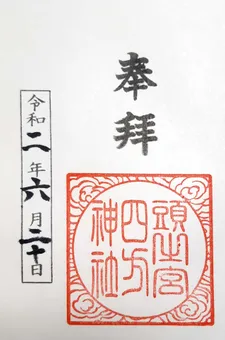 奉拝
頭之宮
四方
神社
令和二年六月二十日